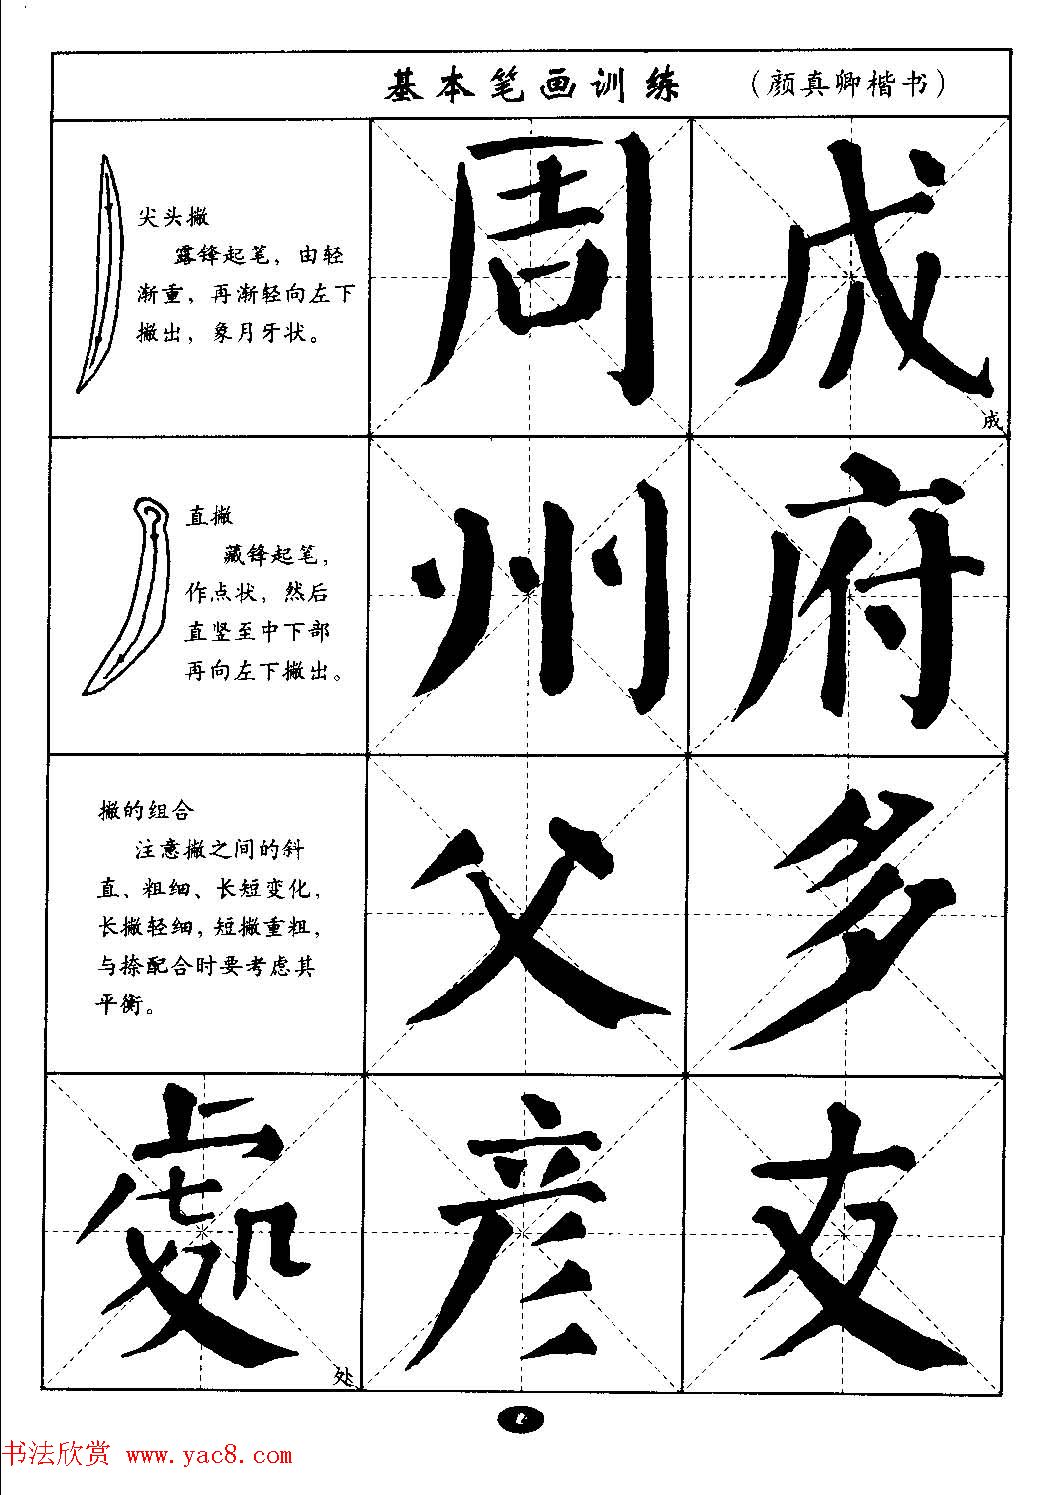 基本笔画训练 （颜真卿楷书）
尖头撇
露锋起笔，由轻
渐重，再渐轻向左下
撇出，象月牙状。
周 成
成
直撇
藏锋起笔，
作点状，然后
直竖至中下部
再向左下撇出。
州 府
撇的组合
注意撇之间的斜
直、粗细、长短变化，
长撇轻细，短撇重粗，
与捺配合时要考虑其
平衡。
父 多
處 彦 友
处
书法欣赏 www.yac8.com